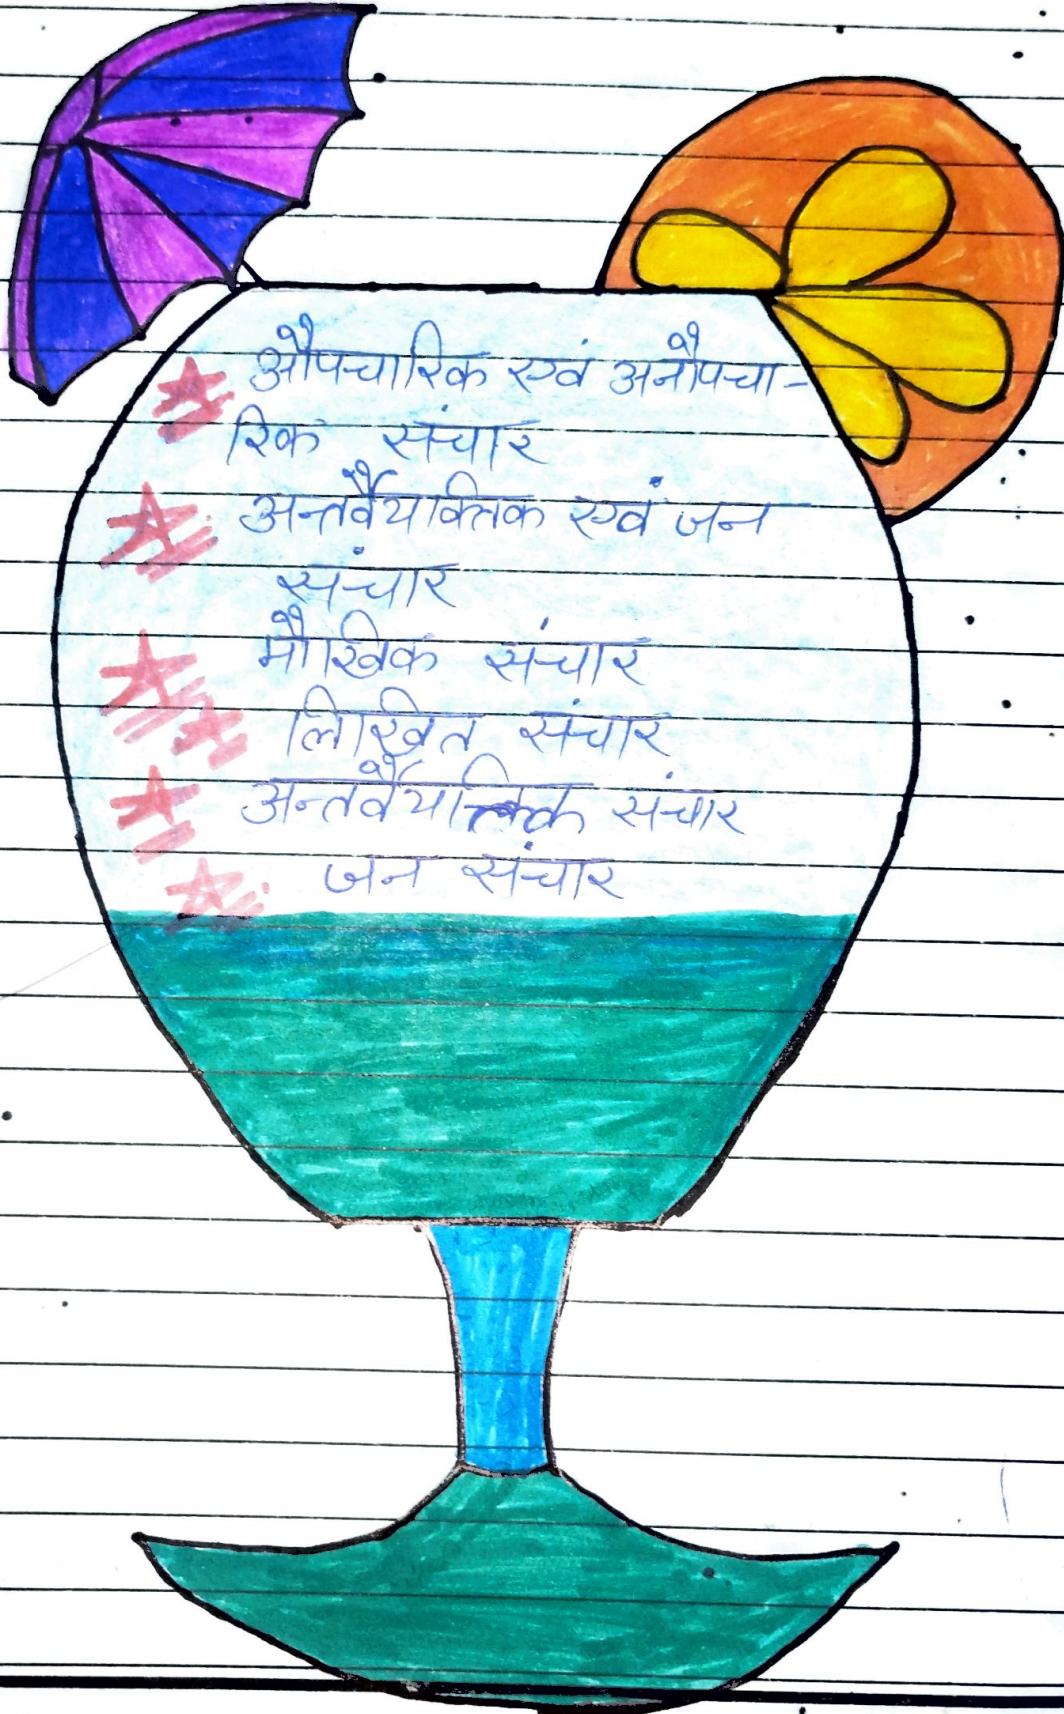 औपचारिक एवं अनौपचा-
रिक संचार
अन्तर्वैयक्तिक एवं जन
संचार
मौखिक संचार
लिखित संचार
अन्तर्वैयक्तिक संचार
जन संचार